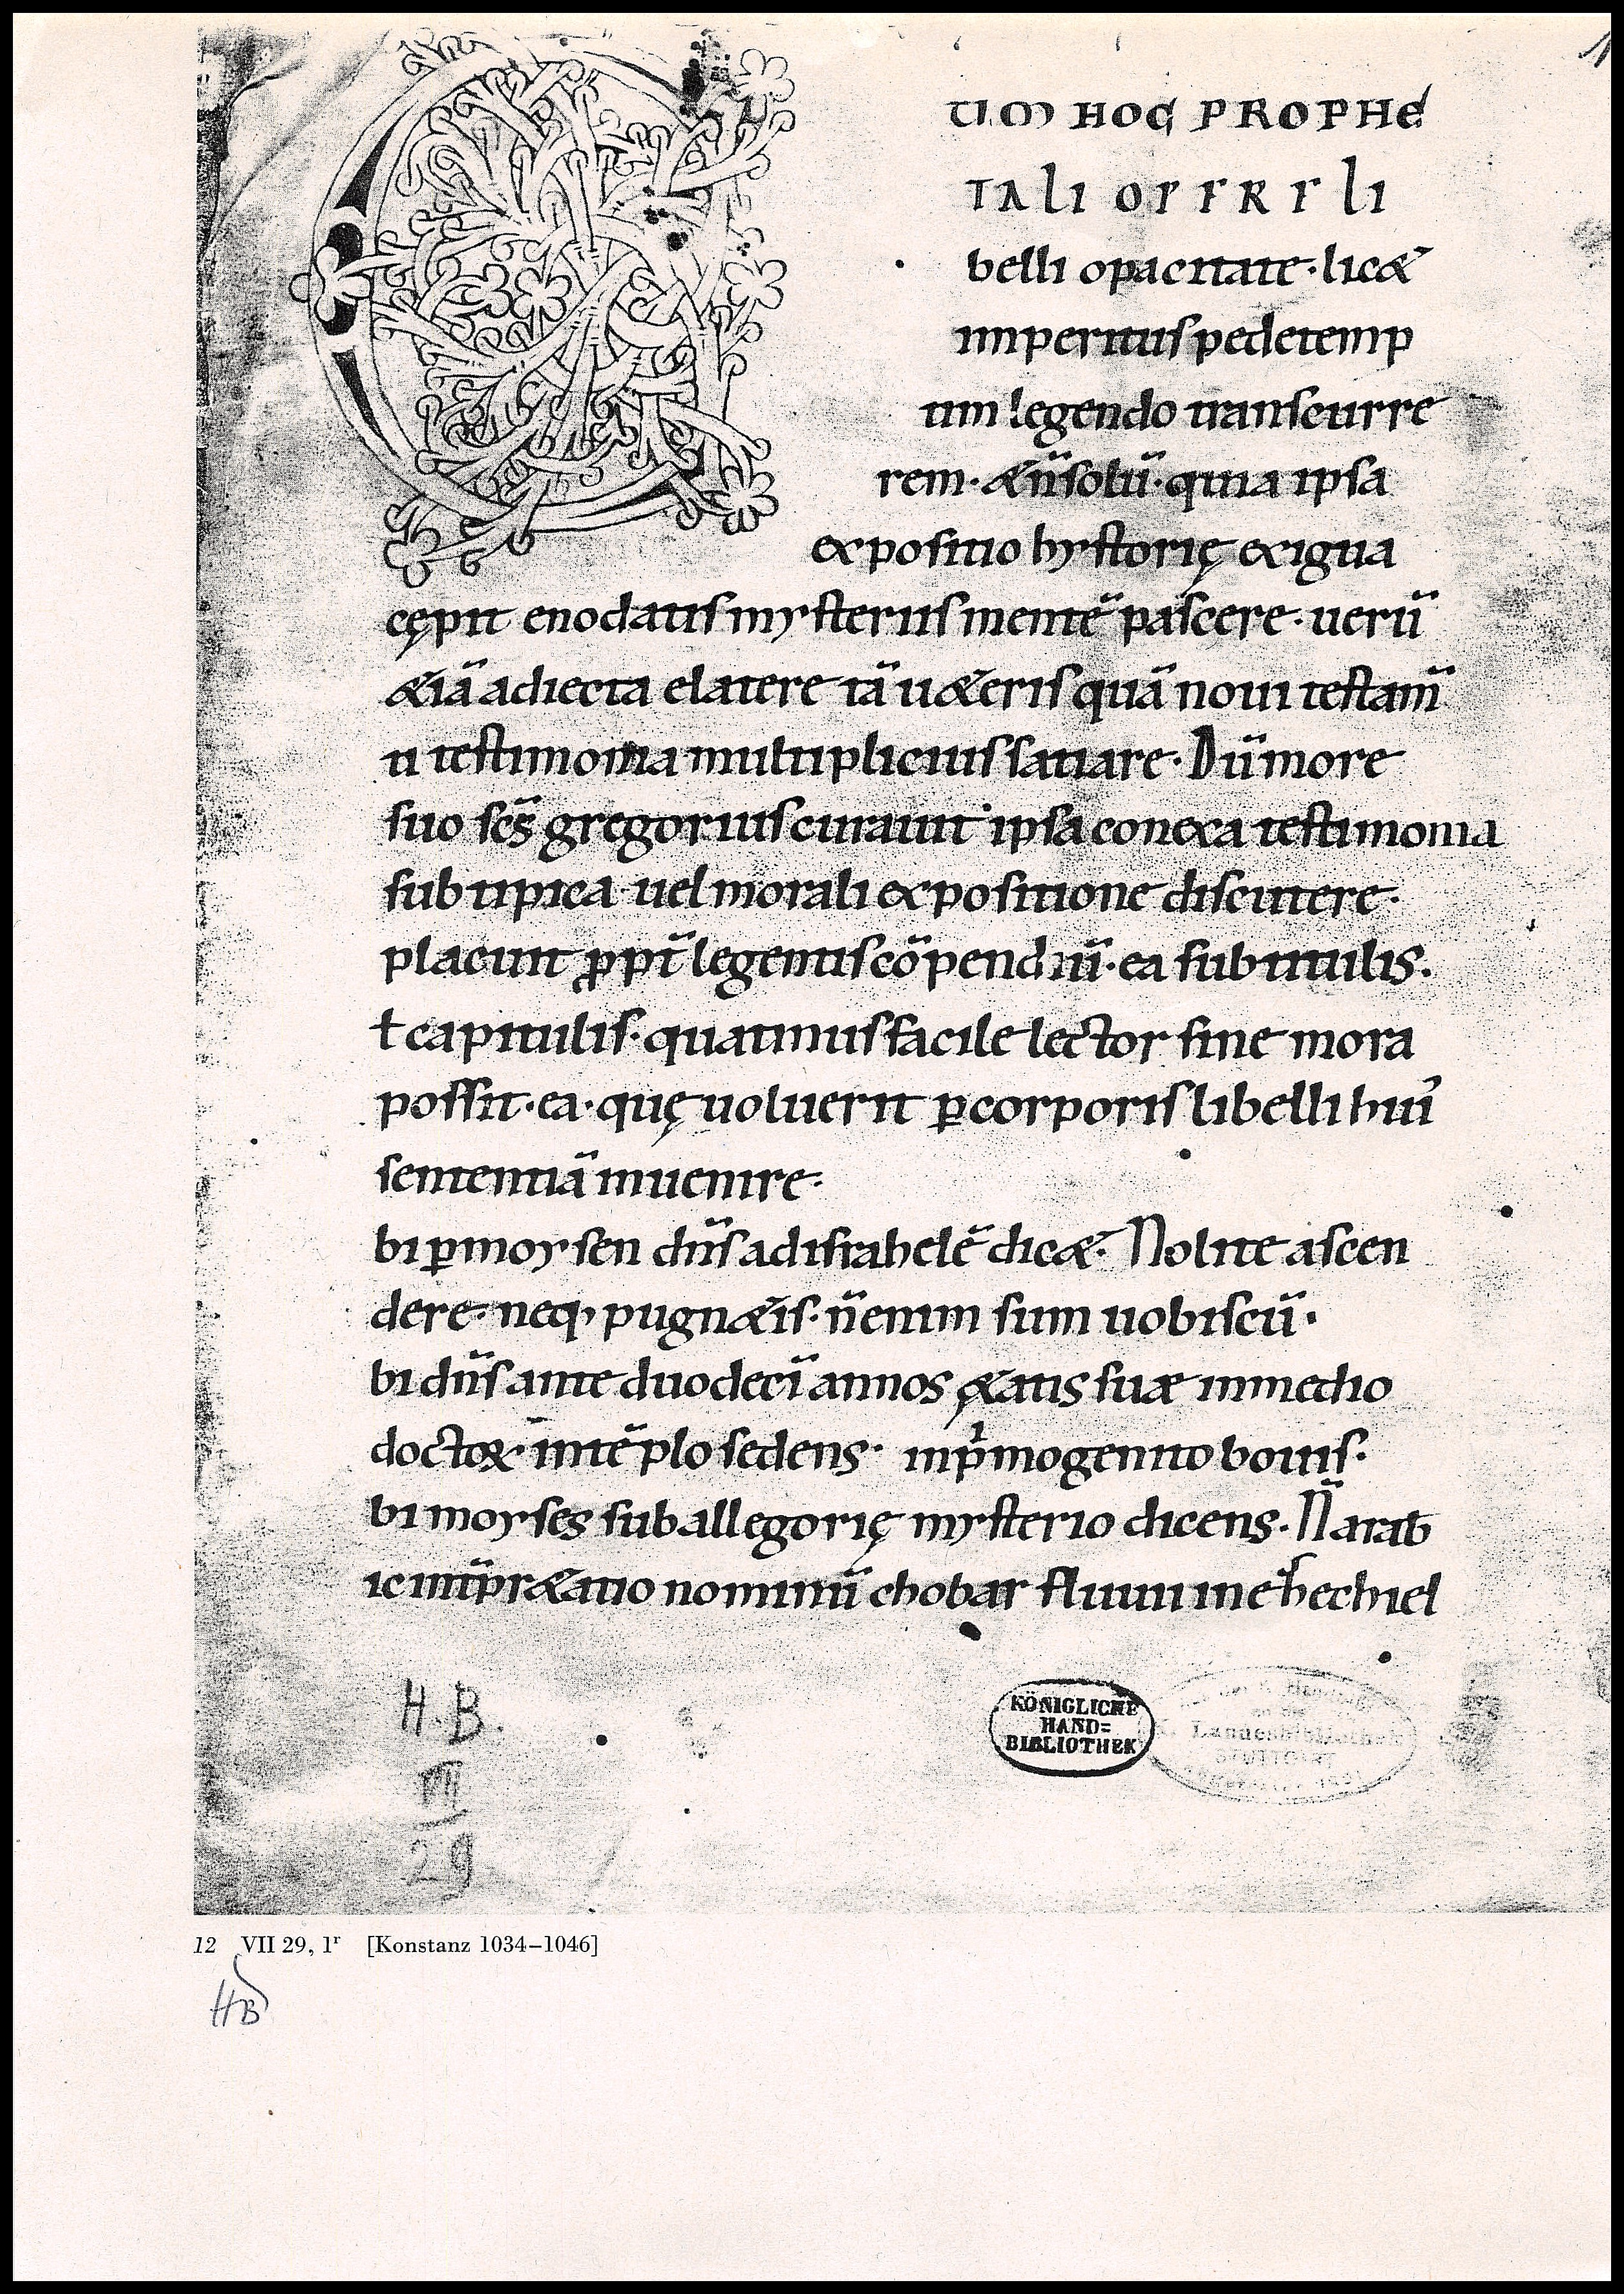 C
UM HOC PROPHE
TALI OPERE ET LI
belli opacitate· licet
imperitus pedetemp
tim legendo transcurre
rem· & n̄ solū· quia ipsa
expositio hystorię exigua
cępit enodatis mysteriis mentē pascere· uerū
&iā adiecta e latere tā u&eris quā noui testam̄
ti testimonia multiplicius satiare· Dū more
suo sc̄s gregorius curauit ipsa conexa testimonia
sub tipica uel morali expositione discutere·
placuit ꝓpt̄ legentis cōpendiū· ea sub titulis.
ł capitulis· quatinus facile lector sine mora
possit· ea· quę uoluerit ꝑ corporis libelli hui᾽
sententiā inuenire·
bi ꝑ moysen dn̄s ad israhelē dic&· Nolite ascen
dere· neq; pugn&is· n̄ enim sum uobiscū·
bi dn̄s ante duodecī annos ę&atis suæ in medio
doctoꝝ· in tēplo sedens· in pͥmogenito bouis·
bi moyses sub allegorię mysterio dicens· N̄ arab
ic int̄pr&atio nominū chobar fluuii in ehechiel
H.B.
VII
29
KÖNIGLICHE
HAND=
BIBLIOTHEK
Landesbibliothek
STUTTGART
12 VII 29, 1r [Konstanz 1034–1046]
HB